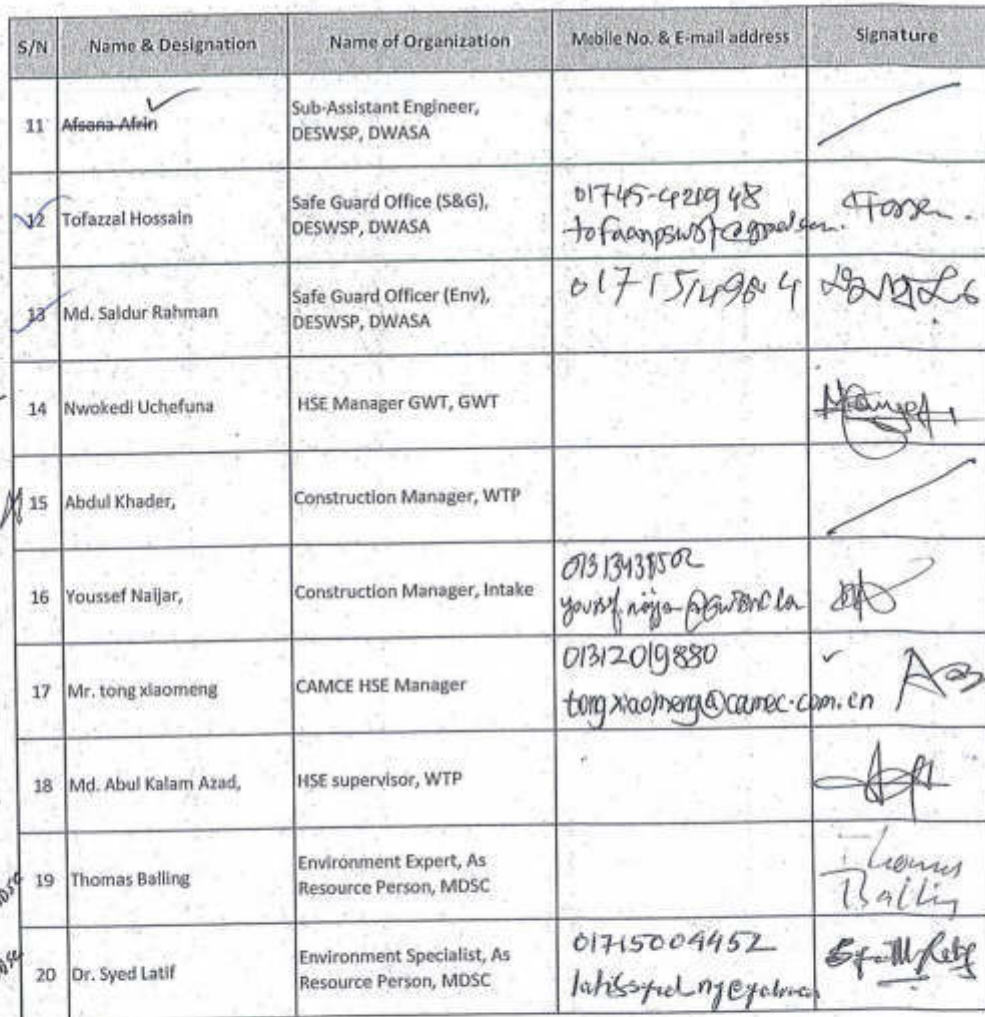 S/N Name & Designation Name of Organization Mobile No. & E-mail address Signature
11 Afsana Afrin Sub-Assistant Engineer,
DESWSP, DWASA
12 Tofazzal Hossain Safe Guard Office (S&G),
DESWSP, DWASA
01745-420948
13 Md. Saidur Rahman Safe Guard Officer (Env),
DESWSP, DWASA
14 Nwokedi Uchefuna HSE Manager GWT, GWT
15 Abdul Khader, Construction Manager, WTP
16 Youssef Naijar, Construction Manager, Intake
17 Mr. tong xiaomeng CAMCE HSE Manager
01312019880
tongxiaomeng@camec.com.cn
18 Md. Abul Kalam Azad, HSE supervisor, WTP
19 Thomas Balling Environment Expert, As
Resource Person, MDSC
Thomas
Balling
20 Dr. Syed Latif Environment Specialist, As
Resource Person, MDSC
01715004452